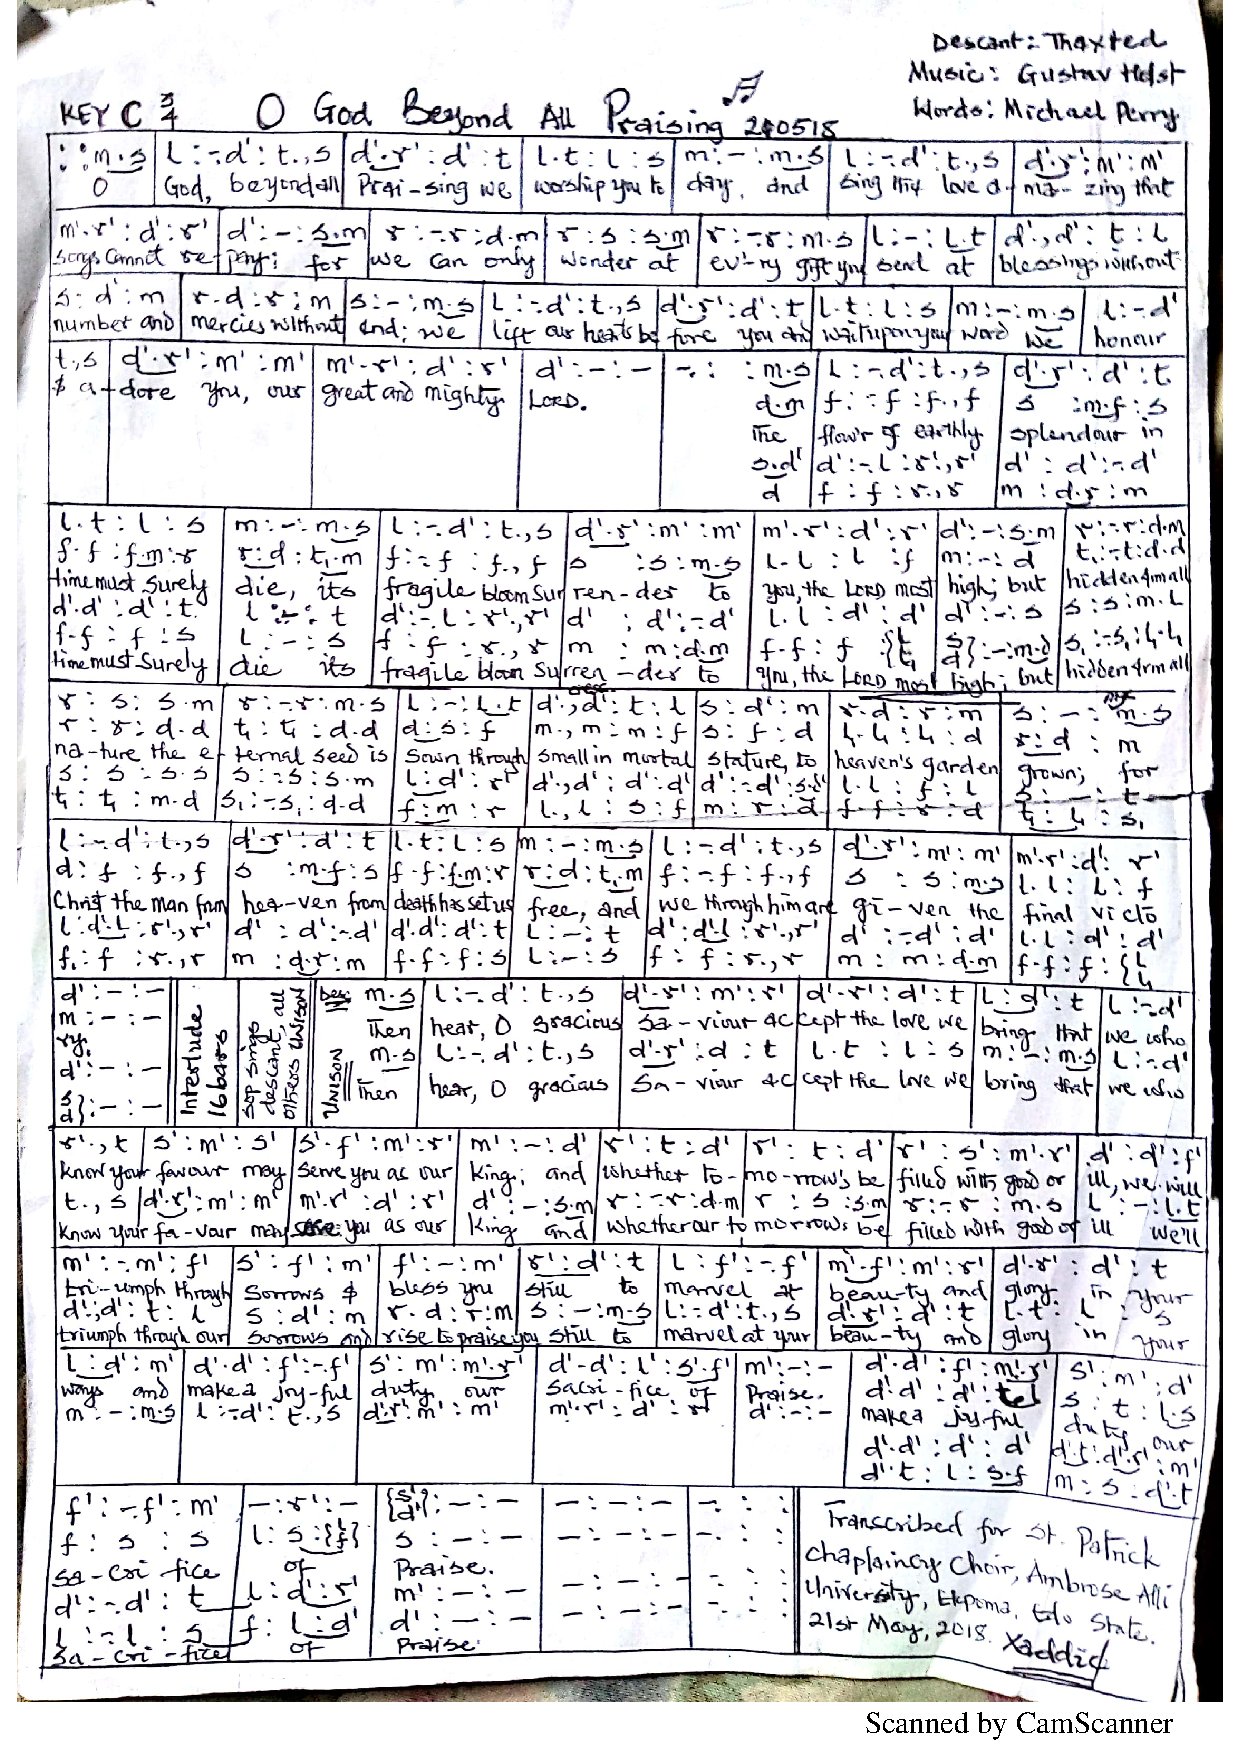 Descant: Thaxted
Music: Gustav Holst
Words: Michael Perry
KEY C 3/4 O God Beyond All Praising 240518
: : m.s | l :-.d' : t.,s | d'.r' : d' : t | l.t : l : s | m : - : m.s | l :-.d' : t.,s | d'.r' : m' : m'
O | God, beyond all | Prai-sing we | worship you to | day, and | sing thy love a- | ma-zing that
m'.r' : d' : r' | d' : - : s.m | r :-.r : d.m | r : s : s.m | r :-.r : m.s | l : - : l.t | d'., d' : t : l
songs cannot re- | pay; for | we can only | wonder at | ev'ry gift you | send at | blessings without
s : d' : m | r.d : r : m | s : - : m.s | l :-.d' : t.,s | d'.r' : d' : t | l.t : l : s | m : - : m.s | l :-.d'
number and | mercies without | end; we | lift our hearts be | fore you and | wait upon your | word we | honour
t.,s | d'.r' : m' : m' | m'.r' : d' : r' | d' : - : - | -. : : m.s | l :-.d' : t.,s | d'.r' : d' : t
& a- | dore you, our | great and mighty | LORD.
d.m | f :-.f : f., f | s : m.f : s
The | flow'r of earthly | splendour in
s.d' | d' :-.l : r'., r' | d' : d' :-.d'
d | f : f : r., r | m : d.r : m
l.t : l : s | m : - : m.s | l :-.d' : t.,s | d'.r' : m' : m' | m'.r' : d' : r' | d' : - : s.m | r :-.r : d.m
f.f : f.m : r | r : d : t₁.m | f :-.f : f., f | s : s : m.s | l.l : l : f | m : - : d | t₁ :-.t₁ : d.d
time must surely | die, its | fragile bloom sur | ren-der to | you, the LORD most | high; but | hidden & small
d'.d' : d' : t | l : - : t | d' :-.l : r'., r' | d' : d' :-.d' | l.l : d' : d' | d' : - : s | s : s : m.l
f.f : f : s | l : - : s | f : f : r., r | m : m : d.m | f.f : f
time must surely | die its | fragile bloom surren | -der to | you, the LORD most | high; but | hidden & small
r : s : s.m | r :-.r : m.s | l : - : l.t | d'., d' : t : l | s : d' : m | r.d : r : m | s : - : m.s
r : r : d.d | t₁ : t₁ : d.d | d : s : f | m., m : m : f | s : f : d | l₁.l₁ : l₁ : d | r : d : m
na-ture the e- | ternal seed is | sown through | small in mortal | stature, to | heaven's garden | grown; for
s : s : s.s | s :-.s : s.m | l : d' : r' | d'., d' : d' : d' | d' :-.d' : s.s | l.l : f : l | s : - : t
t₁ : t₁ : m.d | s₁ :-.s₁ : d.d | f : m : r | l., l : s : f | m : r : d | f.f : r : d | t₁ : l₁ : s₁
l :-.d' : t.,s | d'.r' : d' : t | l.t : l : s | m : - : m.s | l :-.d' : t.,s | d'.r' : m' : m' | m'.r' : d' : r'
d : f : f., f | s : m.f : s | f.f : f.m : r | r : d : t₁.m | f :-.f : f., f | s : s : m.s | l.l : l : f
Christ the man from | hea-ven from | death has set us | free, and | we through him are | gi-ven the | final victo
l : d'.l : r'., r' | d' : d' :-.d' | d'.d' : d' : t | l : - : t | d' : d'.l : r'., r' | d' :-.d' : d' | l.l : d' : d'
f₁ : f : r., r | m : d.r : m | f.f : f : s | l : - : s | f : f : r., r | m : m : d.m | f.f : f
d' : - : - | Interlude 16 bars | Sop sings descant, all others UNISON | m.s | l :-.d' : t.,s | d'.r' : m' : r' | d'.r' : d' : t | l : d' : t | l :-.d'
m : - : -
ry. | Then | hear, O gracious | Sa-viour ac | cept the love we | bring that | we who
d' : - : - | UNISON | m.s | l :-.d' : t.,s | d'.r' : d : t | l.t : l : s | m : - : m.s | l :-.d'
{s d} : - : - | Then | hear, O gracious | Sa-viour ac | cept the love we | bring that | we who
r'., t | s' : m' : s' | s'.f' : m' : r' | m' : - : d' | r' : t : d' | r' : t : d' | r' : s' : m'.r' | d' : d' : f'
know your favour may | serve you as our | King; and | whether to- | mo-rrow's be | filled with good or | ill, we will
t., s | d'.r' : m' : m' | m'.r' : d' : r' | d' : - : s.m | r :-.r : d.m | r : s : s.m | r :-.r : m.s | l : - : l.t
know your fa-vour may | you as our | King and | whether our to | morrows be | filled with good or | ill we'll
m' :-.m' : f' | s' : f' : m' | f' : - : m' | r' : d' : t | l : f' :-.f' | m'.f' : m' : r' | d'.r' : d' : t
tri-umph through | Sorrows & | bless you | still to | marvel at | beau-ty and | glory in your
d'., d' : t : l | s : d' : m | r.d : r : m | s : - : m.s | l :-.d' : t., s | d'.r' : d' : t | l.t : l : s
triumph through our | Sorrows and | rise to praise you | still to | marvel at your | beau-ty and | glory in your
l : d' : m' | d'.d' : f' :-.f' | s' : m' : m'.r' | d'.d' : l' : s'.f' | m' : - : - | d'.d' : f' : m'.r' | s' : m' : d'
ways and | make a joy-ful | duty our | sacri-fice of | Praise. | d'.d' : d' : t.l | s : t : l.s
m : - : m.s | l :-.d' : t., s | d'.r' : m' : m' | m'.r' : d' : r' | d' : - : - | make a joy-ful | duty our
d'.d' : d' : d' | d'.t : d'.r' : m'
d'.t : l : s.f | m : s : d'.t
f' :-.f' : m' | - : r' : - | {s' d'} : - : - | - : - : - | -. : :
f : s : s | l : s : {l f} | s : - : - | - : - : - | -. : :
sa-cri-fice | of | Praise.
d' :-.d' : t | l : d' : r' | m' : - : - | - : - : - | -. : :
l :-.l : s | f : l : d' | d' : - : - | - : - : - | -. : :
Sa-cri-fice | of | Praise.
Transcribed for St. Patrick
Chaplaincy Choir, Ambrose Alli
University, Ekpoma, Edo State.
21st May, 2018. Xaddic
Scanned by CamScanner